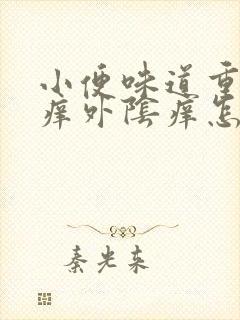 小便味道重
痒外陰痒怎
秦光东